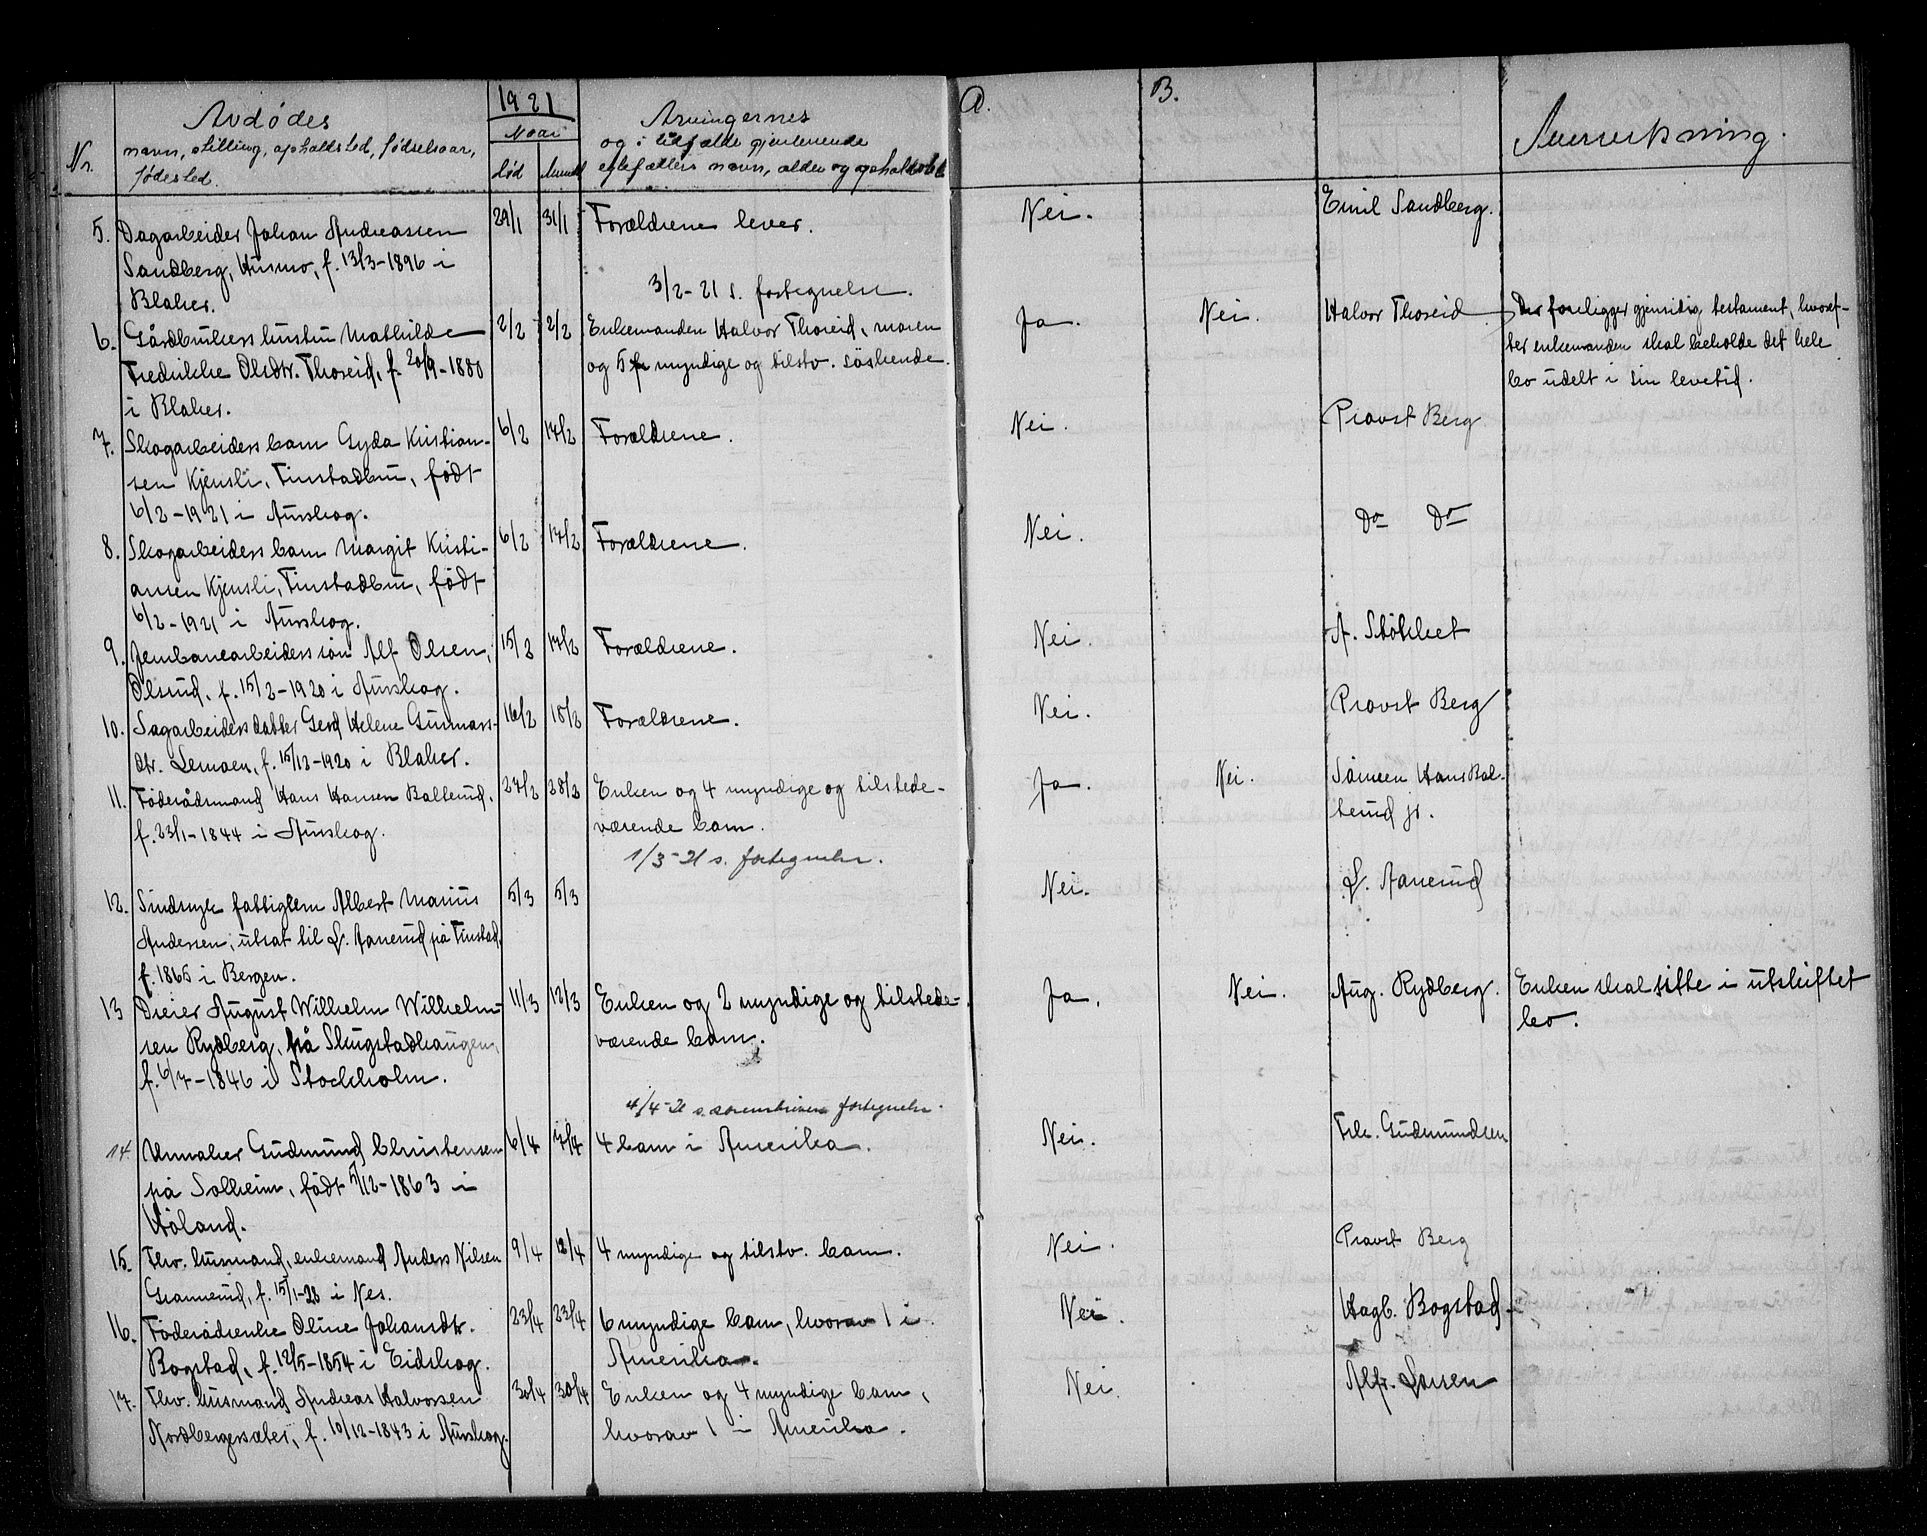 1921
Avdödes
navn, stilling, opholdsted, fødselsaar,
fødested.
Nr.
Naar
död
Anmeldt
Arvingernes
og i tilfælde gjenlevende
egtefælles navn, alder og opholdsted
A.
B.
Anmerkning.
5. Dagarbeider Johan Andreassen 29/1 31/1 Forældrene lever. Nei. Emil Sandberg.
Sandberg, Husmo, f. 13/3-1896 i
Blaker. 3/2-21 s. fortegnelse.
6. Gårdbrukers hustru Mathilde 2/2 2/2 Enkemanden Halvor Thoreid, moren Ja. Nei. Halvor Thoreid Der foreligger gjensidig testament, hvoref-
Fredrikke Olsdtr. Thoreid, f. 20/9-1880 og 5 myndige og tilstv. söskende. ter enkemanden skal beholde det hele
i Blaker. bo udelt i sin levetid.
7. Skogarbeiders barn Gyda Kristian- 6/2 14/2 Forældrene. Nei. Provst Berg
sen Kjensli, Finstadbru, født
6/2-1921 i Aurskog.
8. Skogarbeiders barn Margit Kristi- 6/2 14/2 Forældrene. Nei. Do Do
ansen Kjensli, Finstadbru, født
6/2-1921 i Aurskog.
9. Jernbanearbeiders sön Alf Olsen, 15/2 17/2 Forældrene. Nei. A. Stökket
Olsrud, f. 15/2-1920 i Aurskog.
10. Sagarbeiders datter Gerd Helene Gunnars- 16/2 18/2 Forældrene. Nei. Provst Berg
dtr. Lemoen, f. 15/12-1920 i Blaker.
11. Föderådsmand Hans Hansen Ballerud, 27/2 28/2 Enken og 4 myndige og tilstede- Ja. Nei. Sönnen Hans Bal-
f. 23/1-1844 i Aurskog. værende barn. lerud jr.
1/3-21 s. fortegnelse.
12. Sindssyk fattiglem Albert Marius 5/3 5/3 Nei. L. Aanerud
Andersen, utsat til L. Aanerud på Finstad,
f. 1865 i Bergen.
13 Dreier August Wilhelm Wilhelm- 11/3 12/3 Enken og 2 myndige og tilstede- Ja. Nei. Aug. Rydberg. Enken skal sitte i uskiftet
sen Rydberg, på Skugstadhaugen, værende barn. bo.
f. 6/7-1846 i Stockholm.
4/4-21 s. fortegnelse.
14 Urmaker Gudmund Christensen 6/4 7/4 4 barn i Amerika. Nei. Gudmundsen
på Solheim, født 5/12-1863 i
Höland.
15. Fhv. husmand, enkemand Anders Nilsen 9/4 12/4 4 myndige og tilstv. barn. Nei. Provst Berg
Grannerud, f. 15/1-28 i Nes.
16. Föderådsenke Oline Johansdtr. 23/4 23/4 6 myndige barn, hvorav 1 i Nei. Hagb. Bogstad
Bogstad, f. 12/5-1854 i Eidskog. Amerika.
17. Fhv. husmand Andreas Halvorsen 30/4 30/4 Enken og 4 myndige barn, Nei. Alfr. Larsen
Nordbergersæter, f. 10/12-1843 i Aurskog. hvorav 1 i Amerika.